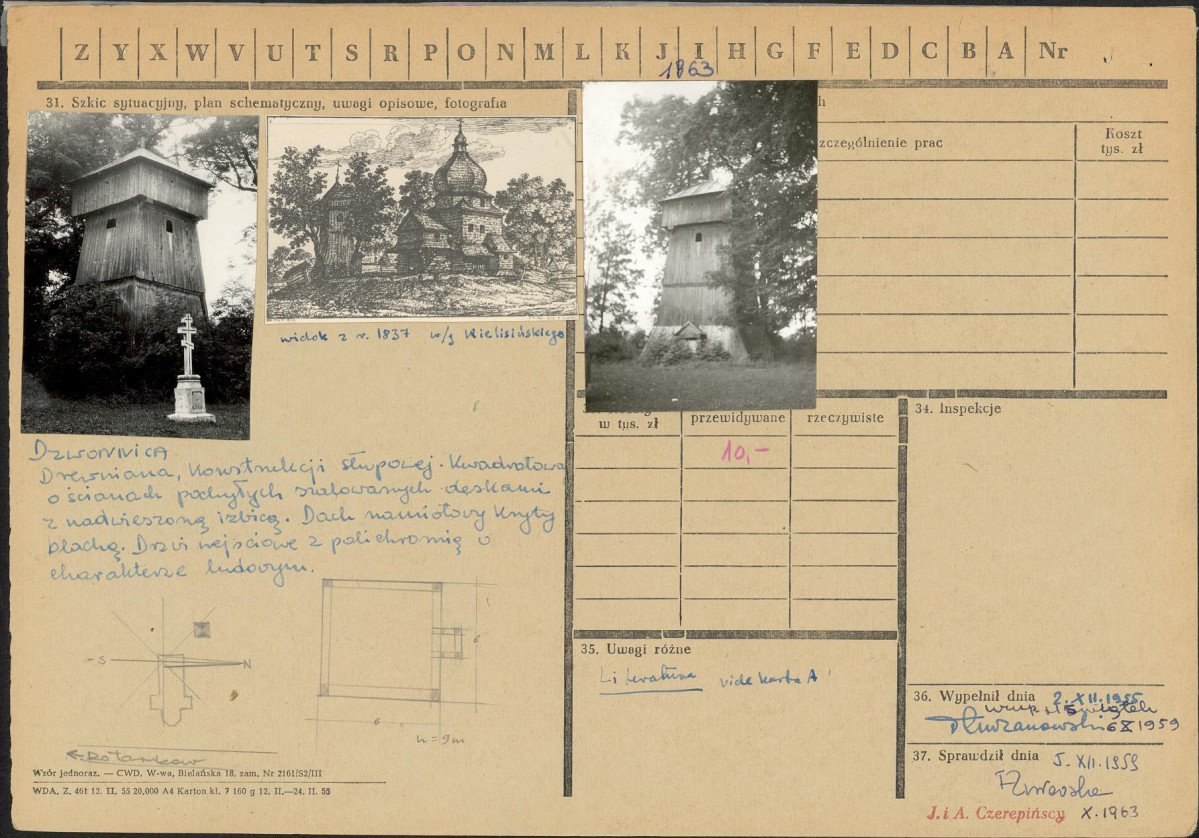 Z Y X W V U T S R P O N M L K J I H G F E D C B A Nr
1963
31. Szkic sytuacyjny, plan schematyczny, uwagi opisowe, fotografia
h
zczególnienie prac
Koszt
tys. zł
widok z r. 1837 w/g Kielisińskiego
Dzwonnica
Drewniana, konstrukcji słupowej. Kwadratowa
o ścianach pochyłych szalowanych deskami
z nadwieszoną izbicą. Dach namiotowy kryty
blachą. Drzwi wejściowe z polichromią o
charakterze ludowym.
S
N
6
6
h = 9m
w tys. zł
przewidywane
rzeczywiste
10,-
34. Inspekcje
35. Uwagi różne
Literatura vide karta A
36. Wypełnił dnia 2. XII. 1955
6 X 1959
37. Sprawdził dnia 5. XII. 1959
J. i A. Czerepińscy X. 1963
Wzór jednoraz. — CWD, W-wa, Bielańska 18, zam. Nr 2161/S2/III
WDA. Z. 461 12. II. 55 20.000 A4 Karton kl. 7 160 g 12. II.—24. II. 55